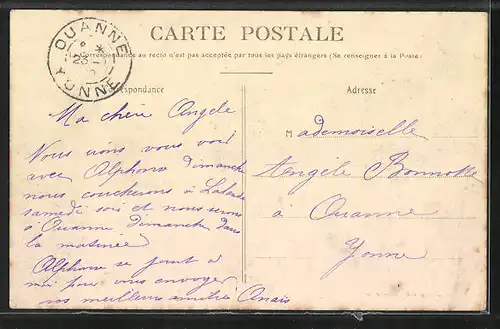 CARTE POSTALE
OUANNE
YONNE
Correspondance au recto n'est pas acceptée par tous les pays étrangers (Se renseigner à la Poste)
respondance
Adresse
Ma chère Angèle
Nous irons vous voir
avec Alphonse dimanche
nous coucherons à Lalande
samedi soir et nous serons
à Ouanne dimanche dans
la matinée
Alphonse se joint à
moi pour vous envoyer
nos meilleurs amitiés Anaïs
Mademoiselle
Angèle
à Ouanne
Yonne